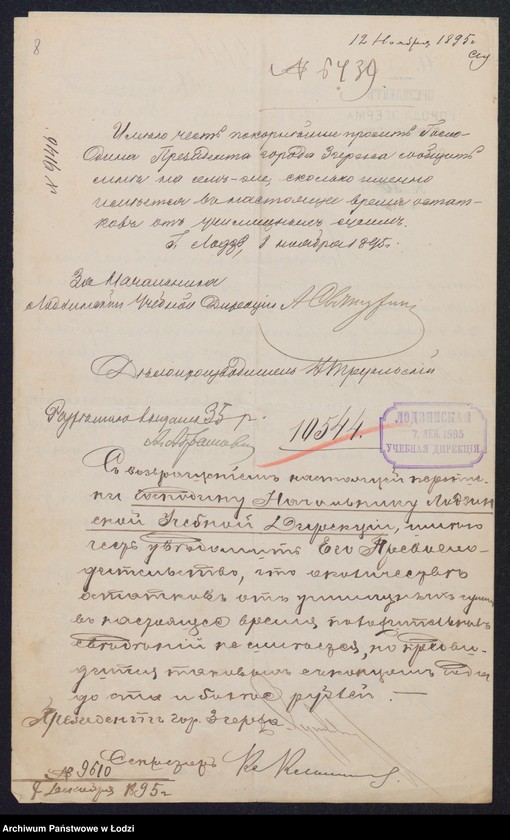 8
12 Ноября 1895 г
№ 6439
№ 9146
Имѣю честь покорнѣйше просить Госпо-
дина Президента города Згержа сообщить
мнѣ на семъ-же, сколько именно
имѣется въ настоящее время остат-
ковъ отъ училищныхъ суммъ.
Г. Лодзь, 8 ноября 1895 г.
За Начальника
Лодзинской Учебной Дирекціи
Дѣлопроизводитель
35 р.
10544.
ЛОДЗИНСКАЯ
7. ДЕК. 1895
УЧЕБНАЯ ДИРЕКЦІЯ
Съ возвращеніемъ настоящей
Господину Начальнику Лодзин
ской Учебной Дирекціи, имѣю
честь увѣдомить Его Превосхо-
дительство, что о количествѣ
остатковъ отъ училищныхъ суммъ
въ настоящее время положительныхъ
свѣдѣній не имѣется, но предви-
дится таковыхъ къ концу года
до ста и болѣе рублей. —
Президентъ гор. Згержа
Секретарь
№ 9610
Декабря 1895 г
Archiwum Państwowe w Łodzi